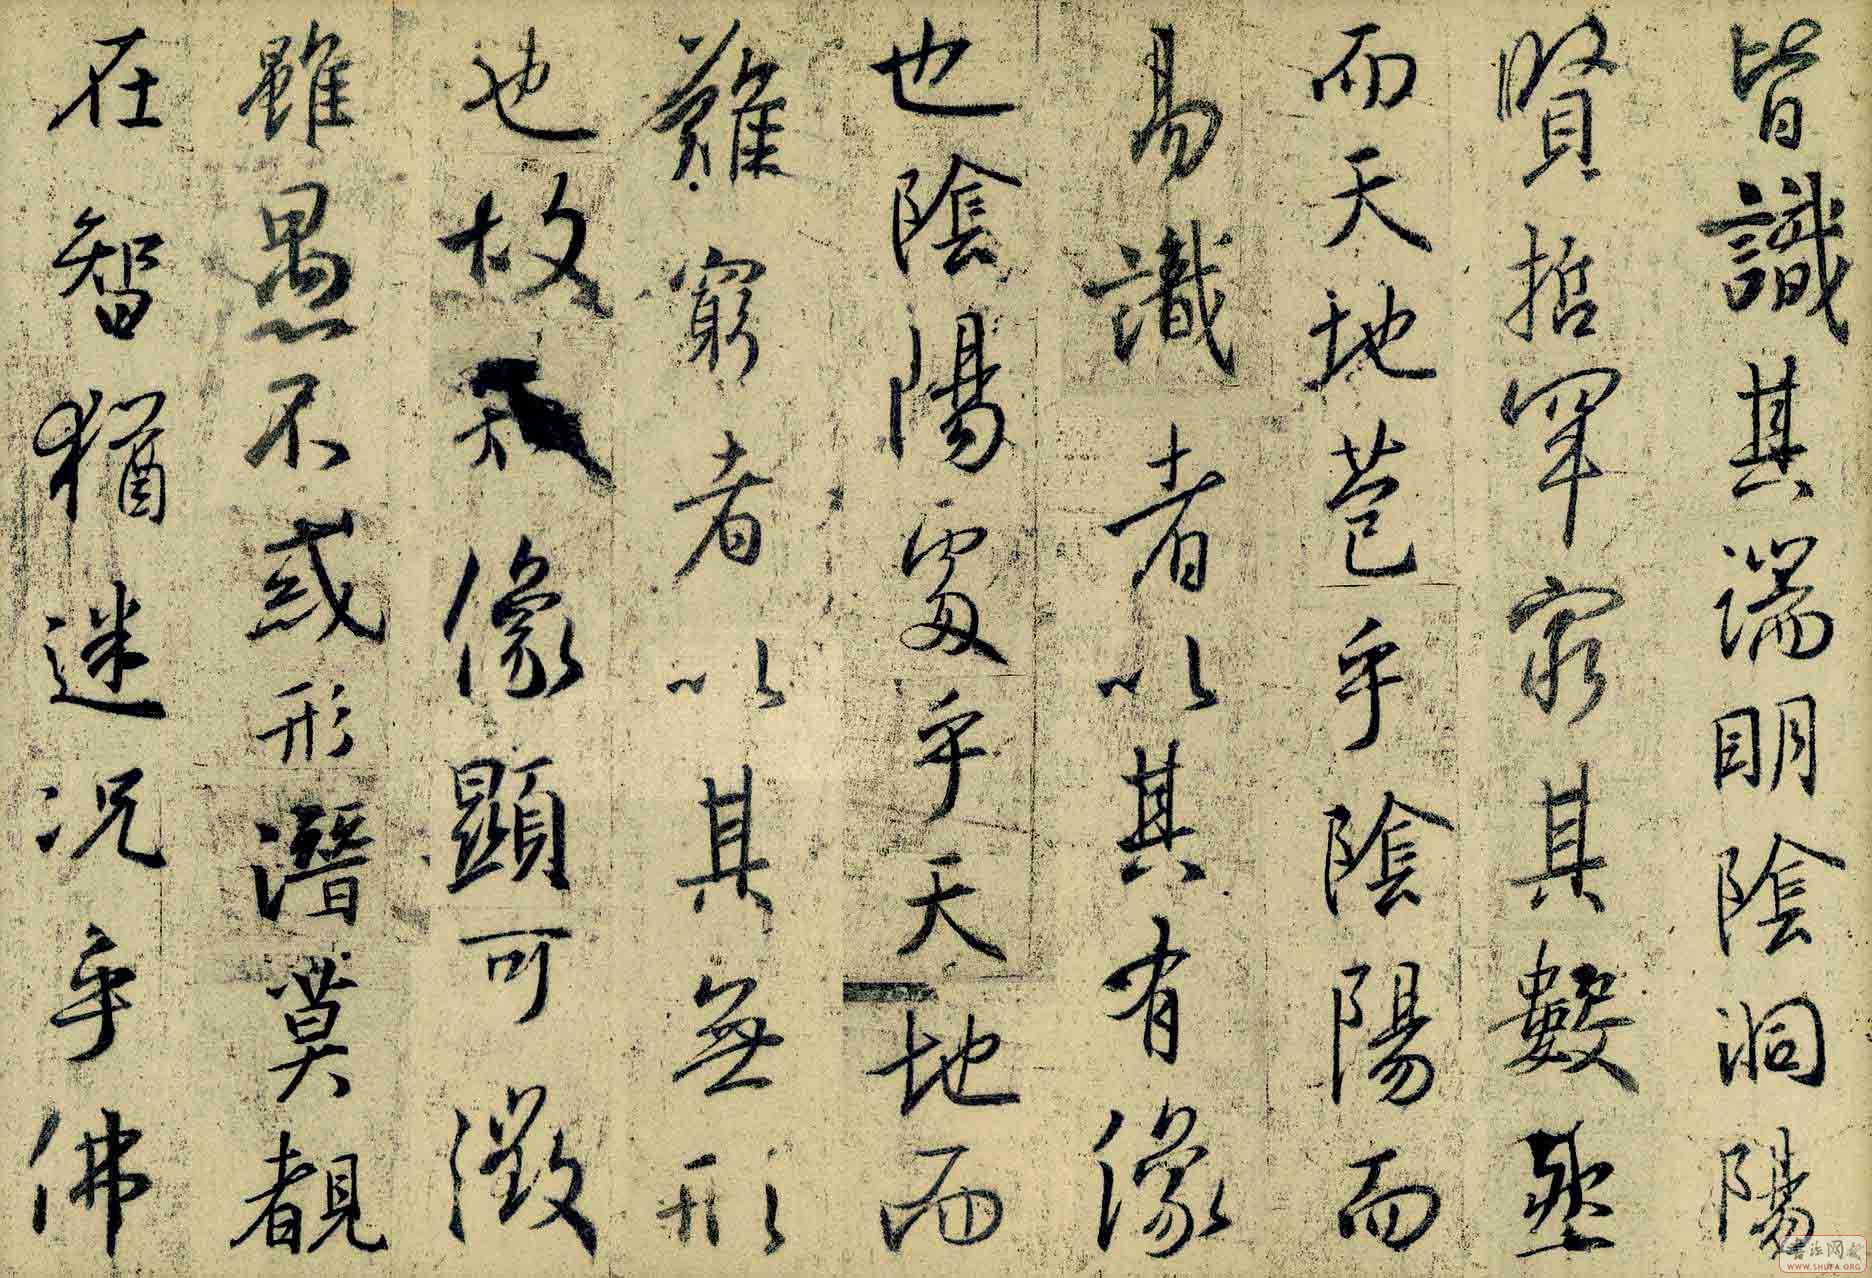 皆識其端明陰洞陽
賢哲罕窮其數然
而天地苞乎陰陽而
易識者以其有像
也陰陽處乎天地而
難窮者以其無形
也故知像顯可徵
雖愚不惑形潛莫覩
在智猶迷況乎佛
WWW.SHUFA.ORG